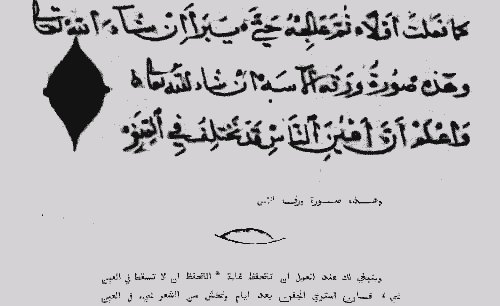 كما فعلت اولاً ثم عالجه حتى يبرأ ان شاء الله تعالى
وهذه صورة وردة الآسة ان شاء الله تعالى
واعلم أن أعين الناس قد تختلف في
وهذه صورة ورقة الآس
وينبغي لك عند العمل ان تتحفظ غاية التحفظ ان لا تسقط في العين
شيء فان استوى الجفن بعد ايام ونخس من الشعر شيء في العين